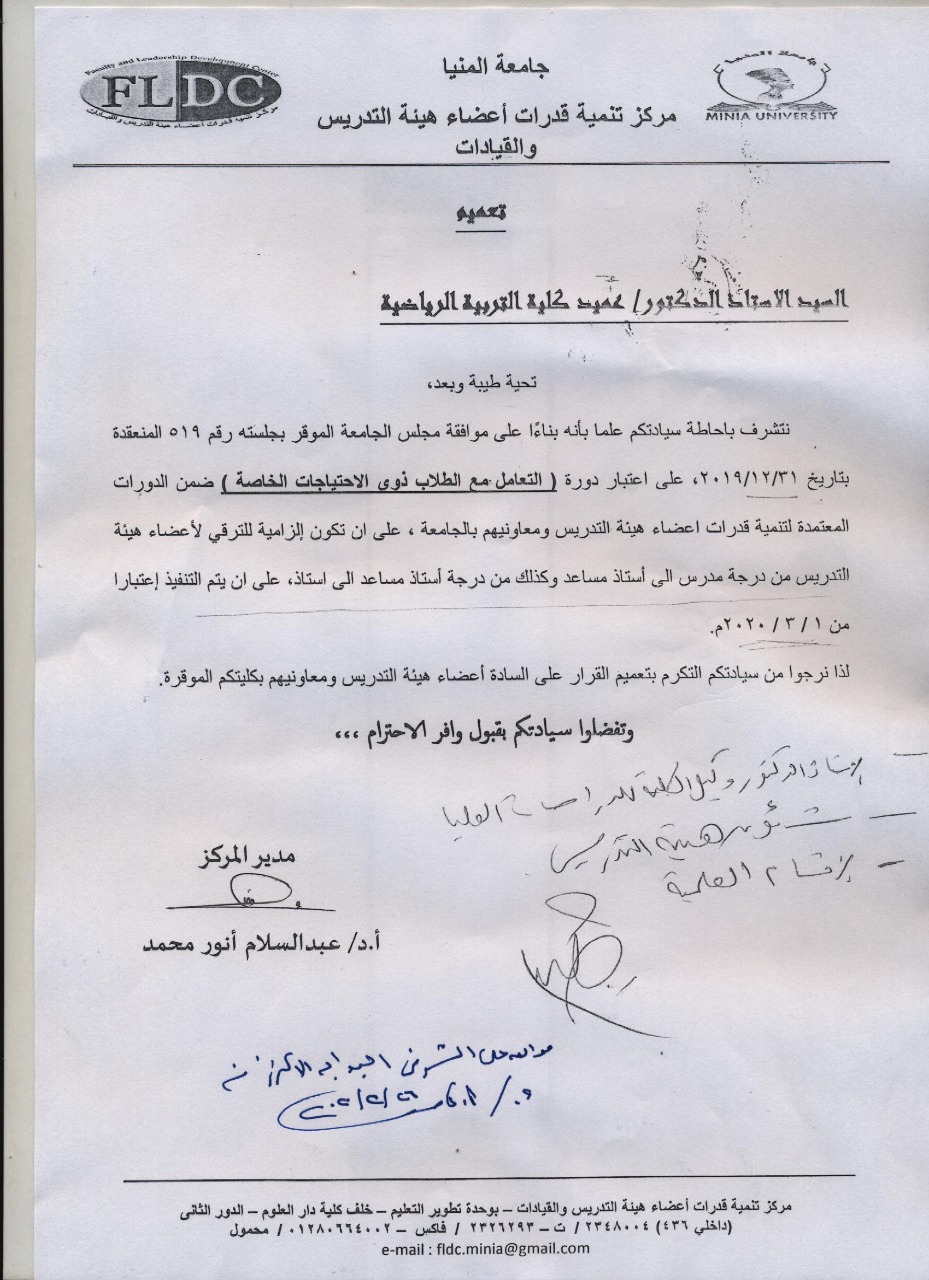 Faculty and Leadership Development Center
FLDC
مركز تنمية قدرات أعضاء هيئة التدريس والقيادات
جامعة المنيا
مركز تنمية قدرات أعضاء هيئة التدريس
والقيادات
جامعة المنيا
MINIA UNIVERSITY
تعميم
السيد الاستاذ الدكتور/ عميد كلية التربية الرياضية
تحية طيبة وبعد،
نتشرف باحاطة سيادتكم علما بأنه بناءًا على موافقة مجلس الجامعة الموقر بجلسته رقم ٥١٩ المنعقدة
بتاريخ ٢٠١٩/١٢/٣١، على اعتبار دورة ( التعامل مع الطلاب ذوى الاحتياجات الخاصة ) ضمن الدورات
المعتمدة لتنمية قدرات اعضاء هيئة التدريس ومعاونيهم بالجامعة ، على ان تكون إلزامية للترقي لأعضاء هيئة
التدريس من درجة مدرس الى أستاذ مساعد وكذلك من درجة أستاذ مساعد الى استاذ، على ان يتم التنفيذ إعتبارا
من ١ / ٣ / ٢٠٢٠م.
لذا نرجوا من سيادتكم التكرم بتعميم القرار على السادة أعضاء هيئة التدريس ومعاونيهم بكليتكم الموقرة.
وتفضلوا سيادتكم بقبول وافر الاحترام ،،،
– الاستاذ الدكتور وكيل الكلية للدراسات العليا
– شئون هيئة التدريس
– الاقسام العلمية
مدير المركز
أ.د/ عبدالسلام أنور محمد
مركز تنمية قدرات أعضاء هيئة التدريس والقيادات – بوحدة تطوير التعليم – خلف كلية دار العلوم – الدور الثانى
(داخلي ٤٣٦) ٢٣٤٨٠٠٤ / ت – ٢٣٢٦٢٩٣ / فاكس – ٠١٢٨٠٦٦٤٠٠٢ / محمول
e-mail : fldc.minia@gmail.com